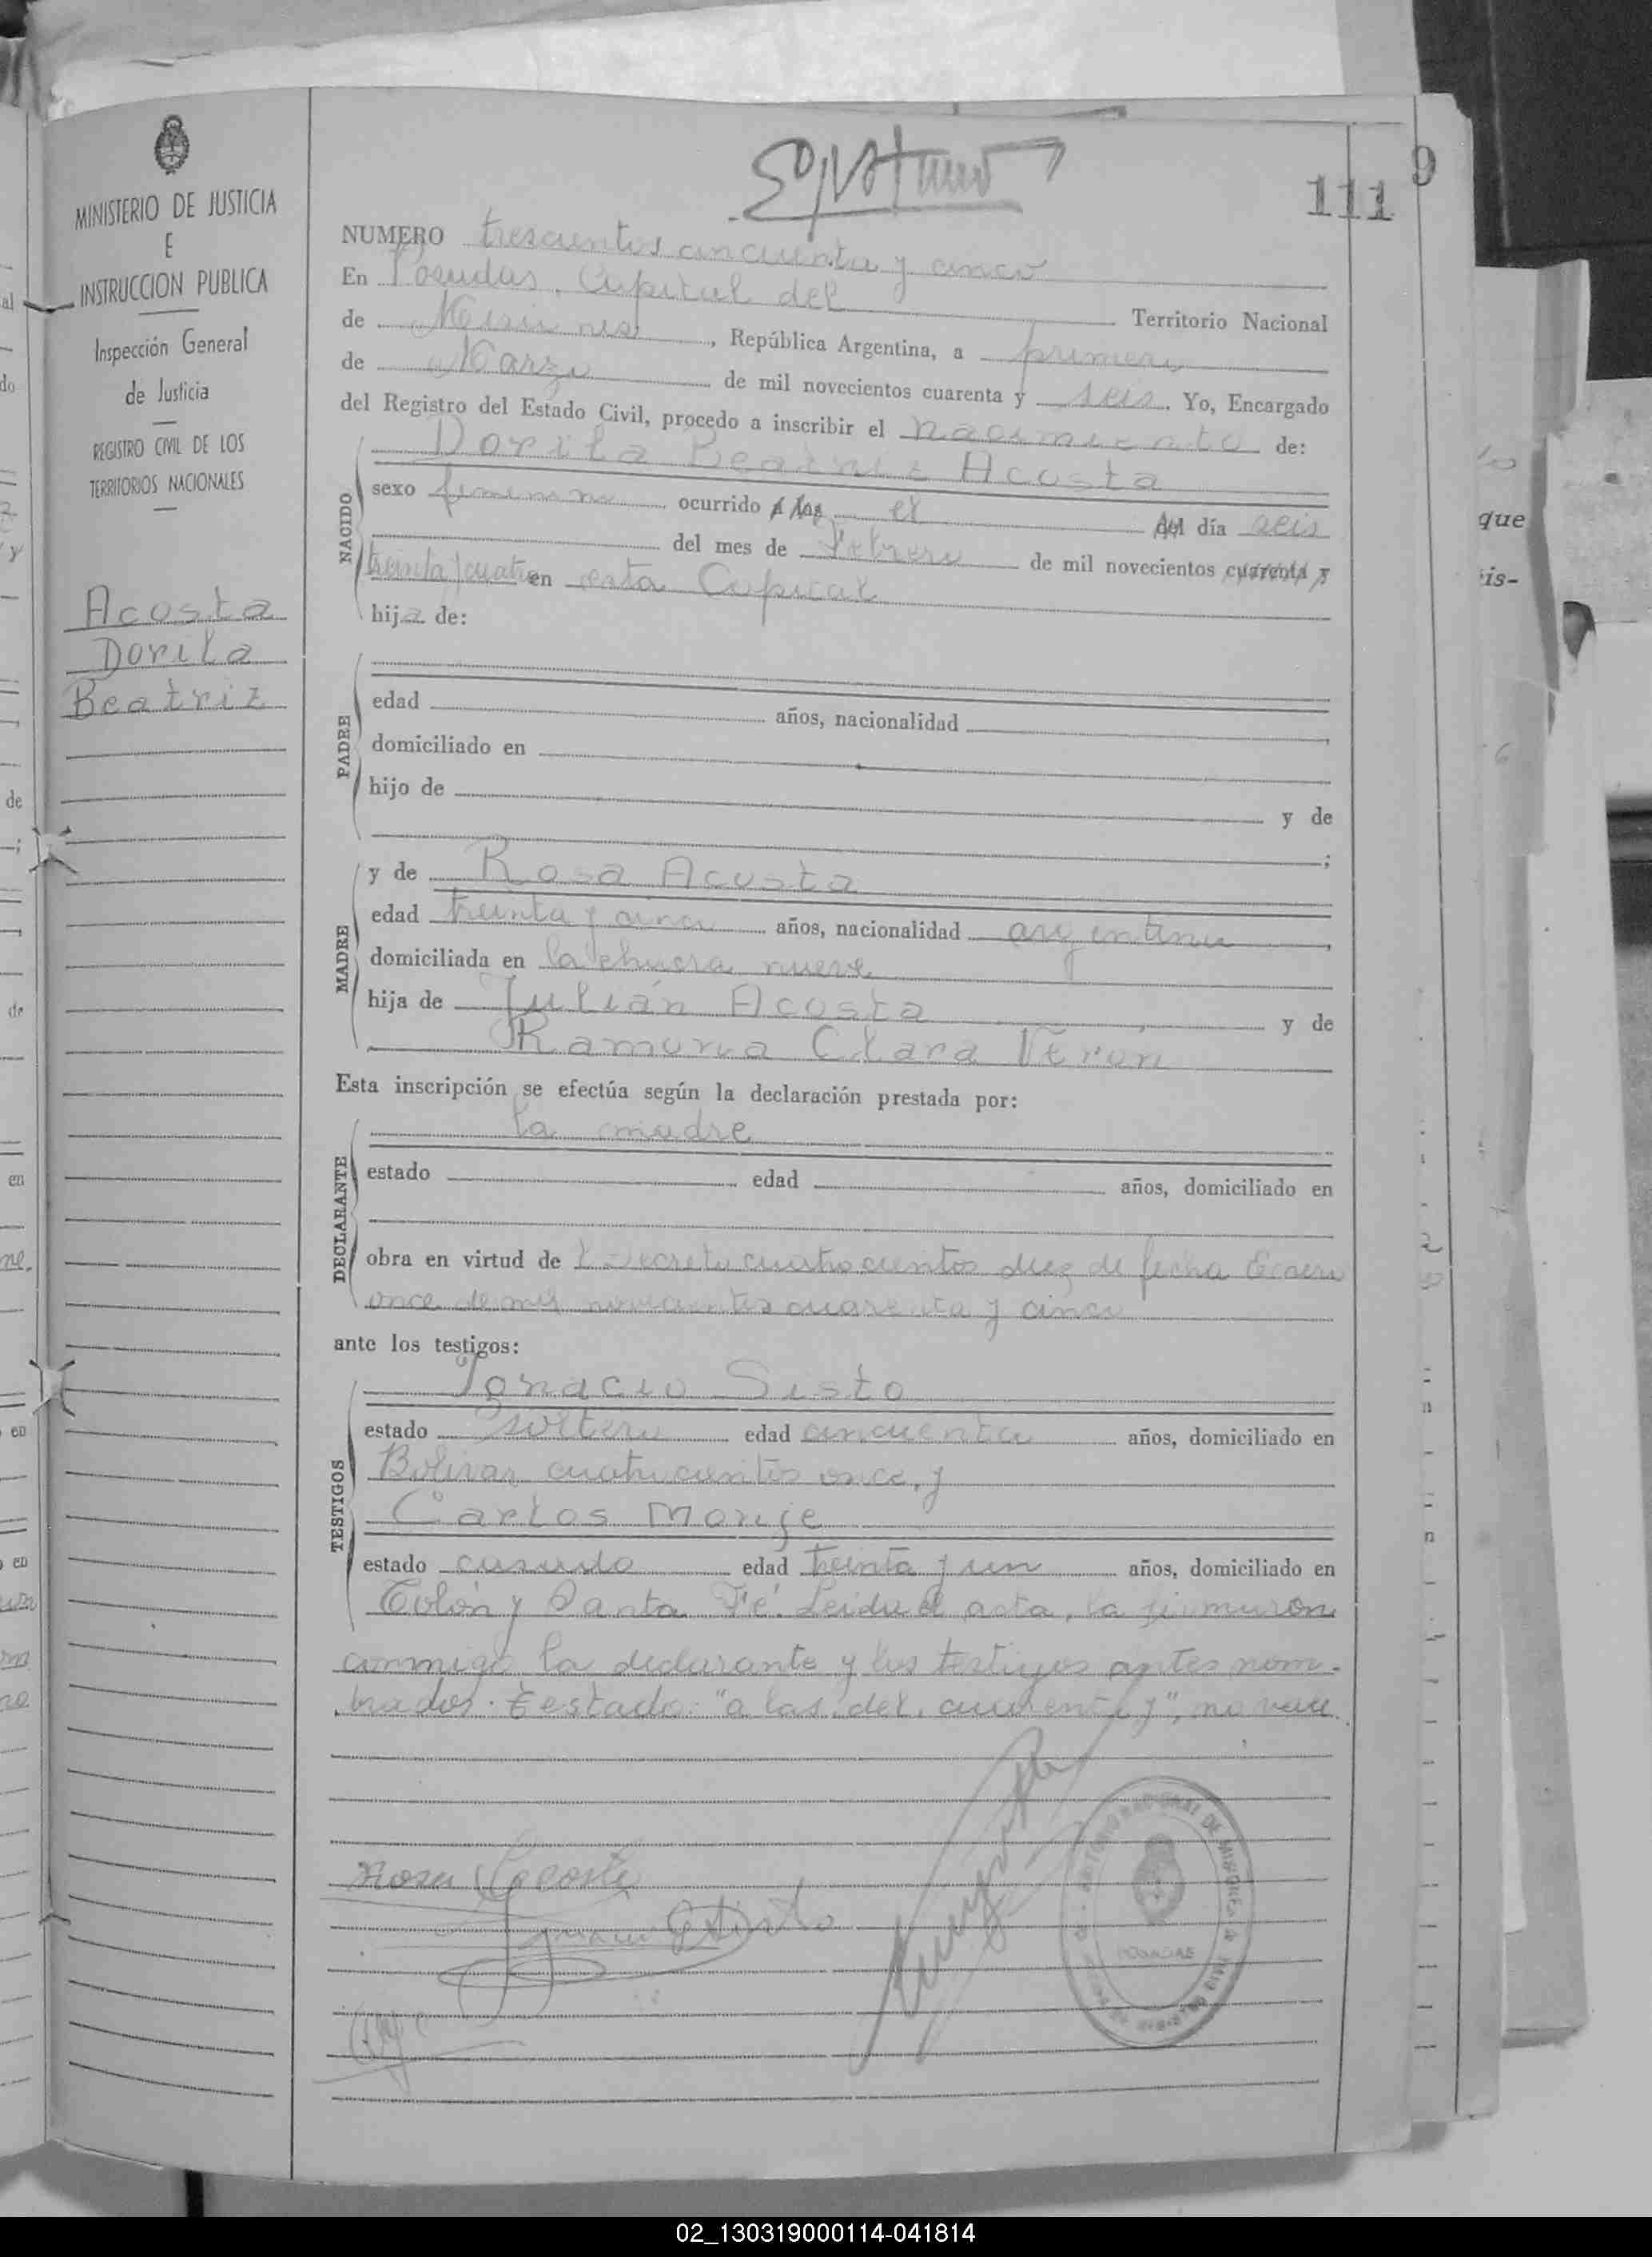 111
9
MINISTERIO DE JUSTICIA
E
INSTRUCCION PUBLICA
Inspección General
de Justicia
REGISTRO CIVIL DE LOS
TERRITORIOS NACIONALES
Acosta
Dorila
Beatriz
NUMERO trescientos cincuenta y cinco
En Posadas, Capital del Territorio Nacional
de Misiones, República Argentina, a primero
de Marzo de mil novecientos cuarenta y seis. Yo, Encargado
del Registro del Estado Civil, procedo a inscribir el nacimiento de:
Dorila Beatriz Acosta
NACIDO
sexo femenino ocurrido a las el del día seis
del mes de Febrero de mil novecientos cuarenta y
treinta y cuatro en esta Capital
hija de:
PADRE
edad años, nacionalidad
domiciliado en
hijo de y de
;
MADRE
y de Rosa Acosta
edad treinta y cinco años, nacionalidad argentina,
domiciliada en la chacra nueve
hija de Julián Acosta y de
Ramona Clara Verón
Esta inscripción se efectúa según la declaración prestada por:
DECLARANTE
la madre
estado edad años, domiciliado en
obra en virtud de l Decreto cuatrocientos diez de fecha Enero
once de mil novecientos cuarenta y cinco
ante los testigos:
TESTIGOS
Ignacio Sisto
estado soltero edad cincuenta años, domiciliado en
Bolivar cuatrocientos once, y
Carlos Monje
estado casado edad treinta y un años, domiciliado en
Colón y Santa Fé. Leida el acta, la firmaron
conmigo la declarante y los testigos antes nom-
brados. Testado: "a las. del. cuarenta y", no vale.
Rosa Acosta
Ignacio Sisto
TERRITORIO NACIONAL DE MISIONES
POSADAS
que
is-
02_130319000114-041814